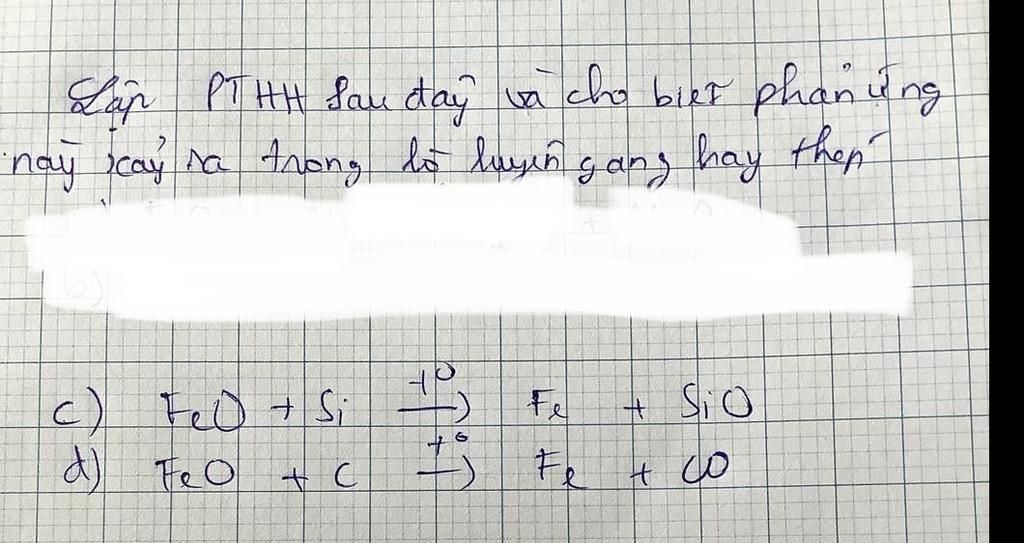 Lập PTHH sau đây và cho biết phản ứng
này xảy ra trong lò luyện gang hay thép
b)
c) FeO + Si t° → Fe + SiO
d) FeO + C t° → Fe + CO